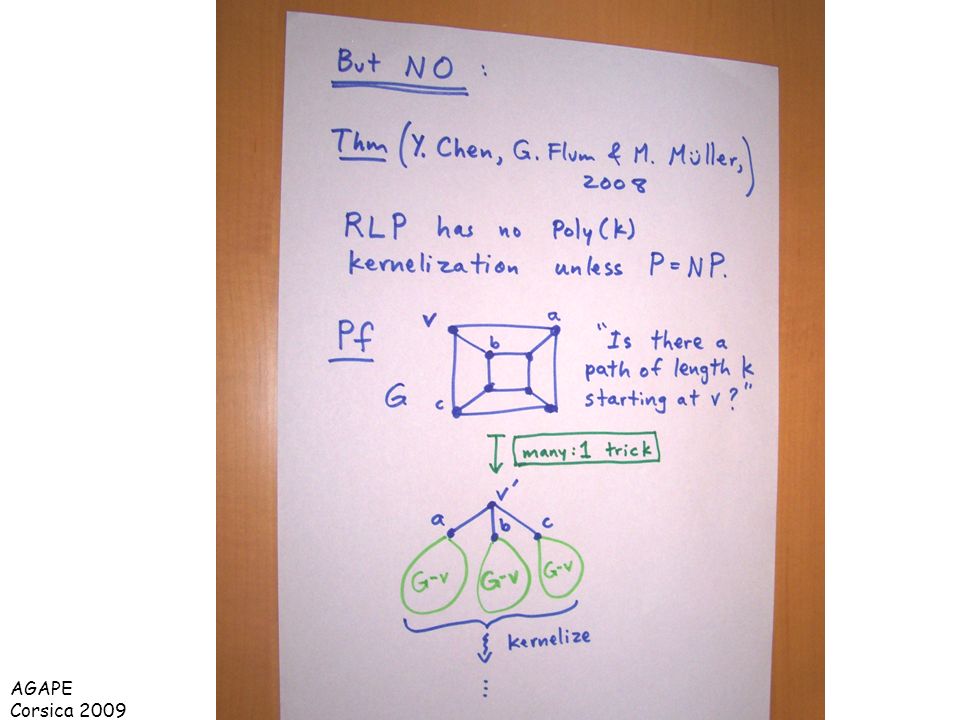 But NO :
Thm (Y. Chen, G. Flum & M. Müller,)
2008
RLP has no Poly(k)
kernelization unless P=NP.
Pf
v a
b
c
G
"Is there a
path of length k
starting at v?"
many:1 trick
v'
a b c
G-v G-v G-v
kernelize
...
AGAPE
Corsica 2009